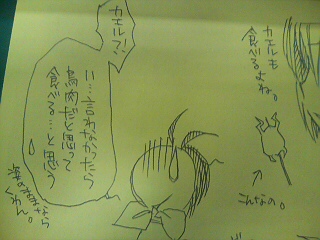 カエルも
食べるよね。
こんなの。
カエル!?
い…言われなかったら
鶏肉だと思って
食べる…と思う
姿のまんまなら
くわん。